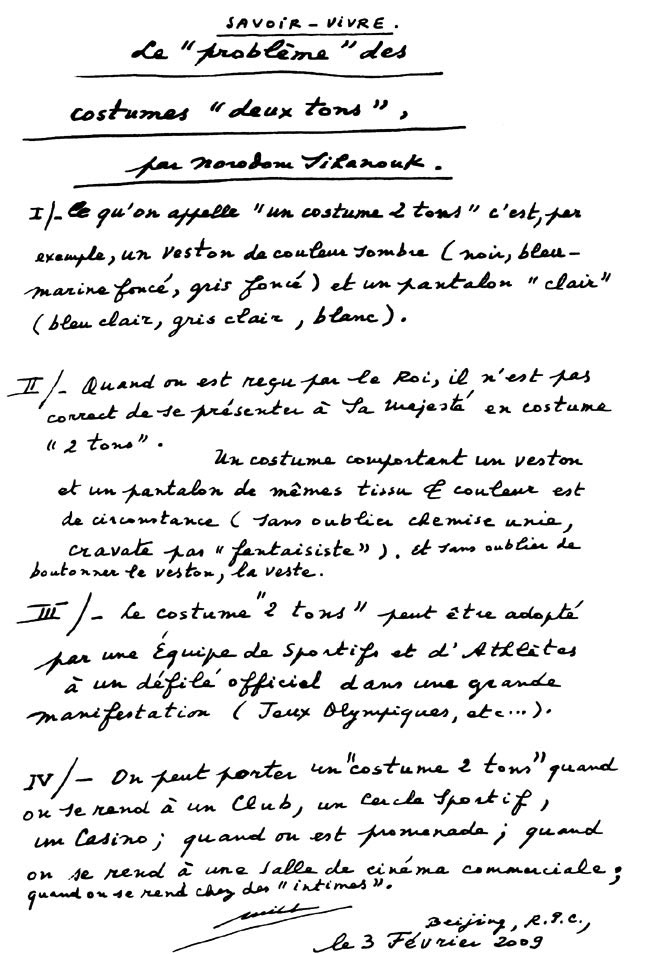 SAVOIR-VIVRE.
Le "problème" des
costumes "deux tons",
par Norodom Sihanouk.
I/- Ce qu'on appelle "un costume 2 tons" c'est, par
exemple, un veston de couleur sombre (noir, bleu-
marine foncé, gris foncé) et un pantalon "clair"
(bleu clair, gris clair, blanc).
II/- Quand on est reçu par le Roi, il n'est pas
correct de se présenter à Sa Majesté en costume
"2 tons".
Un costume comportant un veston
et un pantalon de mêmes tissu & couleur est
de circonstance (sans oublier chemise unie,
cravate pas "fantaisiste"). et sans oublier de
boutonner le veston, la veste.
III/- Le costume "2 tons" peut être adopté
par une Équipe de Sportifs et d'Athlètes
à un défilé officiel dans une grande
manifestation (Jeux Olympiques, etc...).
IV/- On peut porter un "costume 2 tons" quand
on se rend à un Club, un Cercle Sportif,
un Casino; quand on est promenade; quand
on se rend à une salle de cinéma commerciale;
quand on se rend chez des "intimes".
Beijing, R.P.C.,
le 3 Février 2009